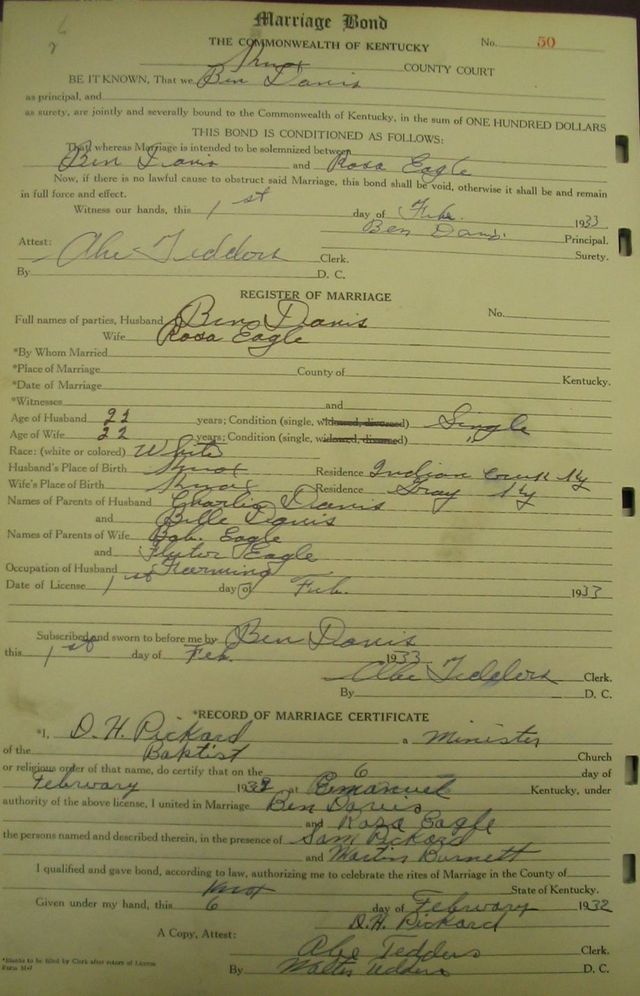 Marriage Bond
THE COMMONWEALTH OF KENTUCKY No. 50
Knox COUNTY COURT
BE IT KNOWN, That we Ben Davis
as principal, and
as surety, are jointly and severally bound to the Commonwealth of Kentucky, in the sum of ONE HUNDRED DOLLARS
THIS BOND IS CONDITIONED AS FOLLOWS:
That whereas Marriage is intended to be solemnized between
Ben Davis and Rosa Eagle
Now, if there is no lawful cause to obstruct said Marriage, this bond shall be void, otherwise it shall be and remain
in full force and effect.
Witness our hands, this 1st day of Feb. 1933
Ben Davis. Principal.
Attest: Surety.
Abe Tedders Clerk.
By D. C.
REGISTER OF MARRIAGE
Full names of parties, Husband Ben Davis No.
Wife Rosa Eagle
*By Whom Married
*Place of Marriage County of Kentucky.
*Date of Marriage
*Witnesses and
Age of Husband 22 years; Condition (single, widowed, divorced) Single
Age of Wife 22 years; Condition (single, widowed, divorced) "
Race: (white or colored) White
Husband's Place of Birth Knox Residence Indian Creek Ky
Wife's Place of Birth Knox Residence Gray Ky
Names of Parents of Husband Charlie Davis
and Bille Davis
Names of Parents of Wife Bob. Eagle
and Eagle
Occupation of Husband Farming
Date of License 1st day of Feb. 1933
Subscribed and sworn to before me by Ben Davis
this 1st day of Feb. 1933
Abe Tedders Clerk.
By D. C.
*RECORD OF MARRIAGE CERTIFICATE
*I, D. H. Pickard a Minister
of the Baptist Church
or religious order of that name, do certify that on the 6 day of
February 1932 at Emanuel Kentucky, under
authority of the above license, I united in Marriage Ben Davis
and Rosa Eagle
the persons named and described therein, in the presence of Sam Pickard
and Martin Burnett
I qualified and gave bond, according to law, authorizing me to celebrate the rites of Marriage in the County of
Knox State of Kentucky.
Given under my hand, this 6 day of February 1932
D. H. Pickard
A Copy, Attest:
Abe Tedders Clerk.
By Walter Tedders D. C.
*Blanks to be filled by Clerk after return of License